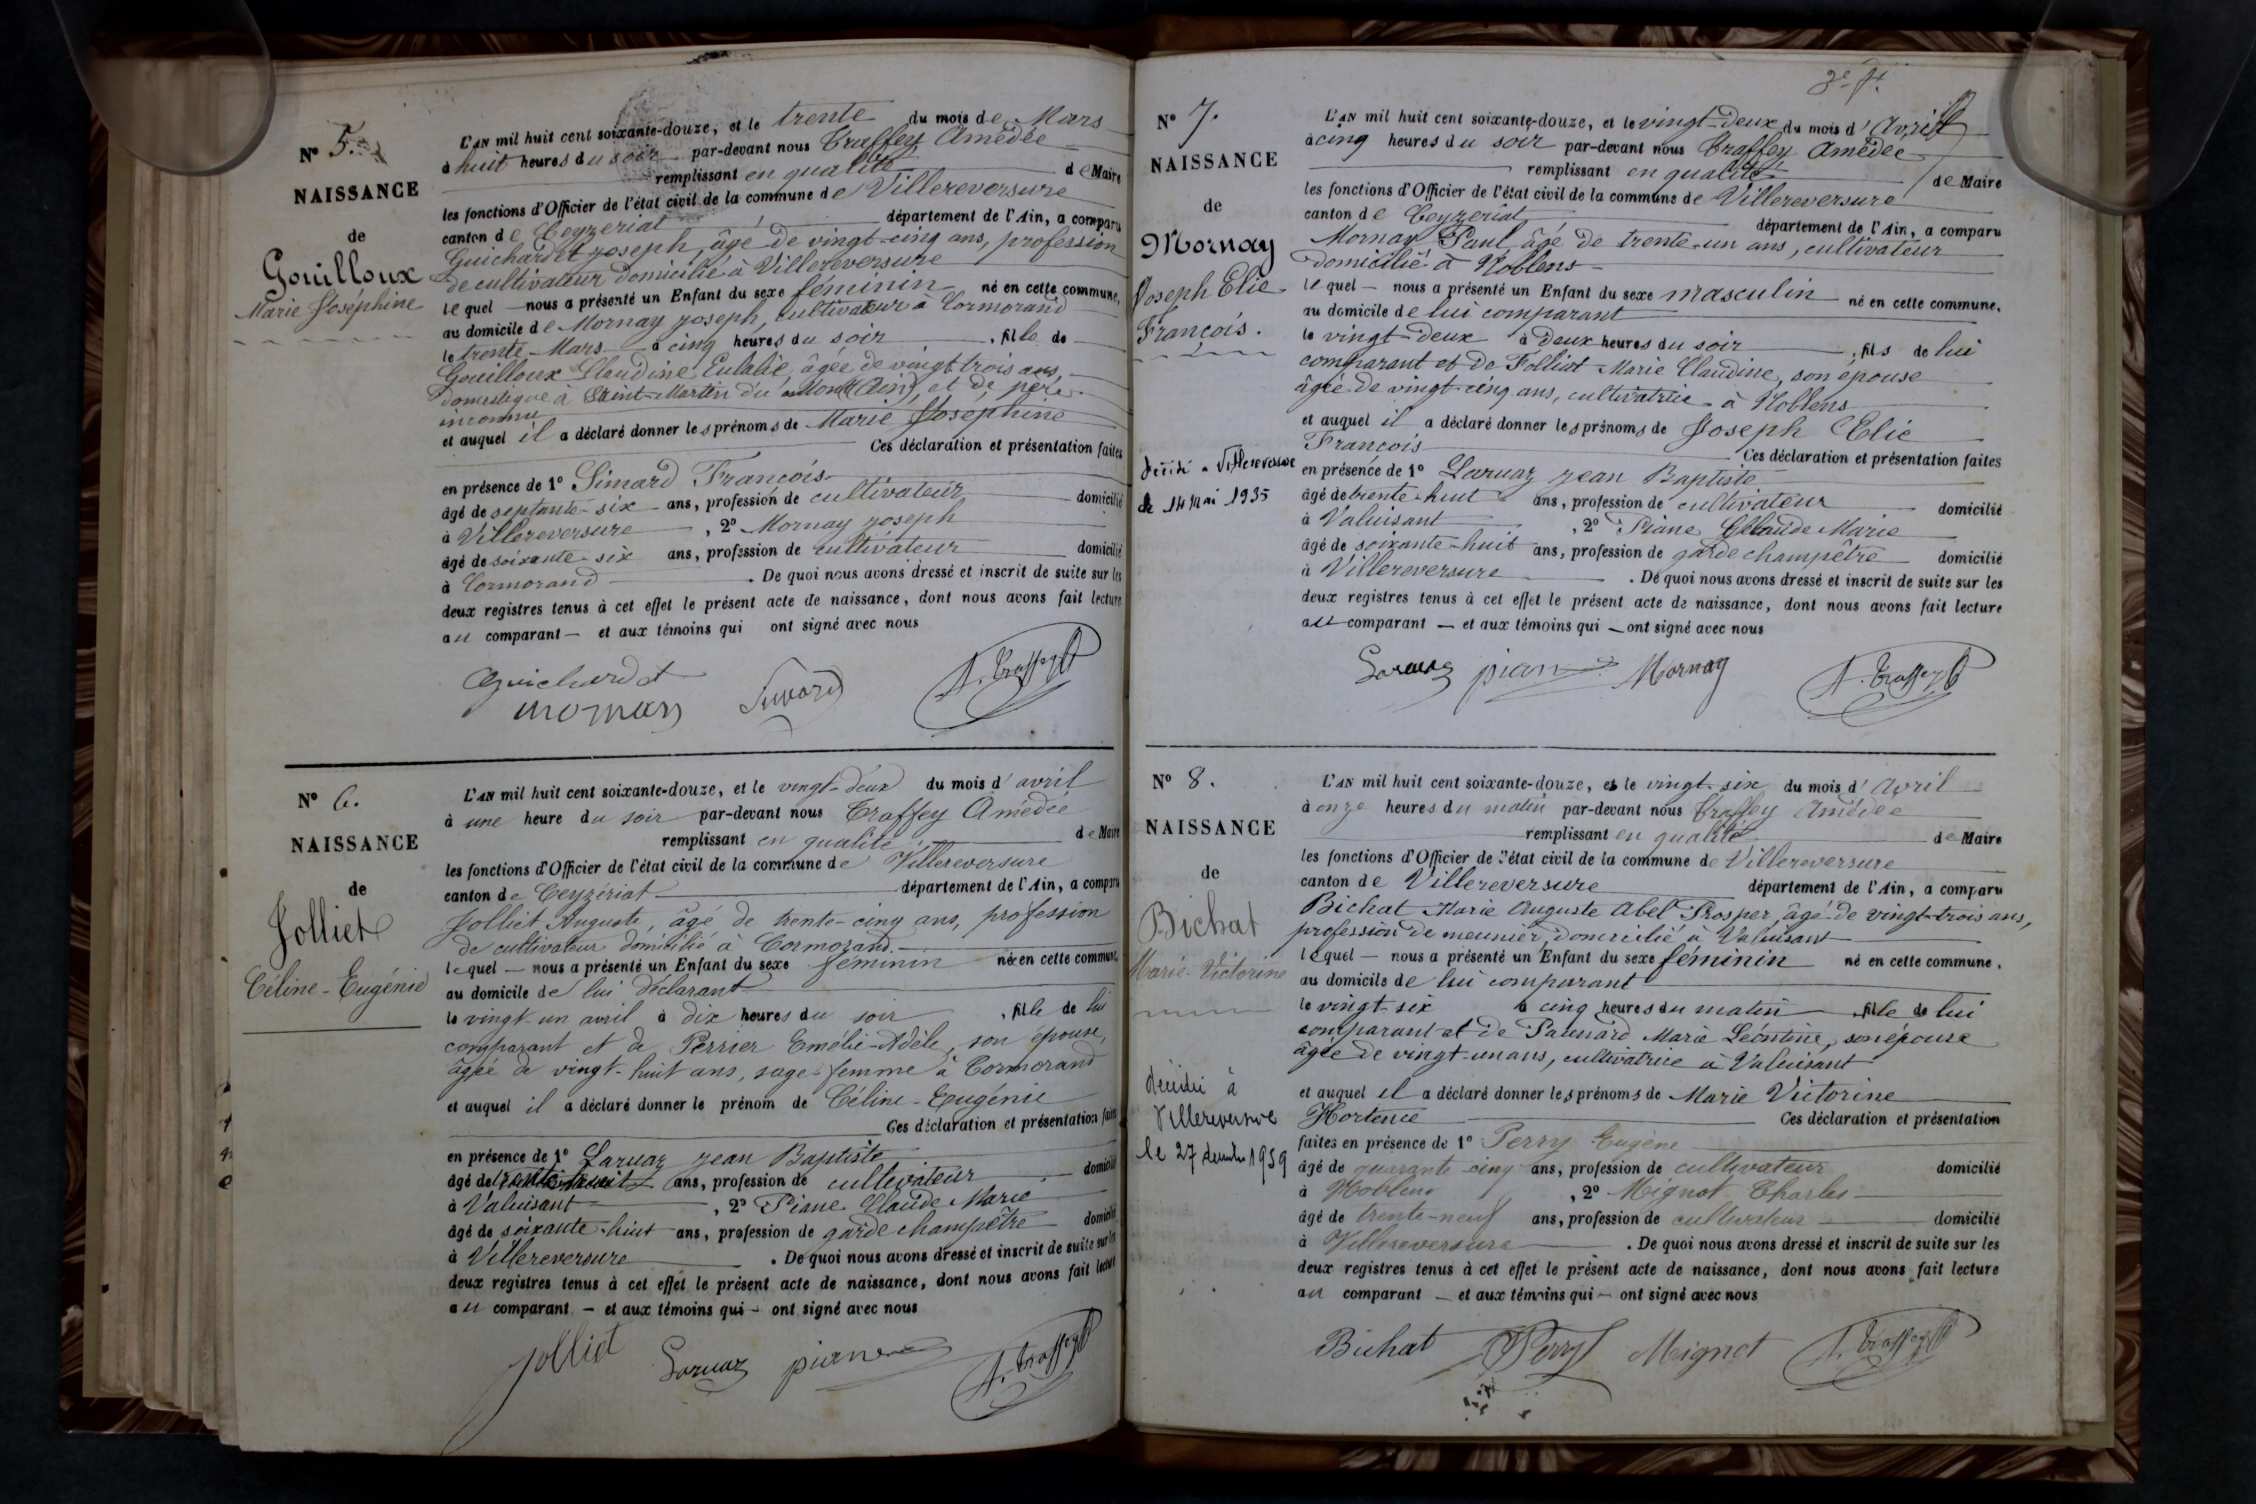 Nº 5.
NAISSANCE
de
Gouilloux
Marie Joséphine
L'AN mil huit cent soixante-douze, et le trente du mois de Mars
à huit heures du soir par-devant nous Traffey Amédée
remplissant en qualité de Maire
les fonctions d'Officier de l'état civil de la commune de Villereversure
canton de Ceyzeriat département de l'Ain, a comparu
Guichardet Joseph, âgé de vingt-cinq ans, profession
de cultivateur domicilié à Villereversure
lequel nous a présenté un Enfant du sexe féminin né en cette commune,
au domicile de Mornay Joseph, cultivateur à Cormorand
le trente Mars à cinq heures du soir , fille de
Gouilloux Claudine Eulalie, âgée de vingt trois ans,
domestique à Saint-Martin du Mont (Ain), et de père
inconnu
et auquel il a déclaré donner les prénoms de Marie Joséphine
Ces déclaration et présentation faites
en présence de 1º Simard François
âgé de septante-six ans, profession de cultivateur domicilié
à Villereversure , 2º Mornay Joseph
âgé de soixante-six ans, profession de cultivateur domicilié
à Cormorand . De quoi nous avons dressé et inscrit de suite sur les
deux registres tenus à cet effet le présent acte de naissance, dont nous avons fait lecture
au comparant — et aux témoins qui ont signé avec nous
Guichardet
A. Traffey
Nº 6.
NAISSANCE
de
Jolliet
Céline-Eugénie
L'AN mil huit cent soixante-douze, et le vingt-deux du mois d'avril
à une heure du soir par-devant nous Traffey Amédée
remplissant en qualité de Maire
les fonctions d'Officier de l'état civil de la commune de Villereversure
canton de Ceyzériat département de l'Ain, a comparu
Jolliet Auguste, âgé de trente-cinq ans, profession
de cultivateur domicilié à Cormorand.
lequel — nous a présenté un Enfant du sexe féminin née en cette commune,
au domicile de lui déclarant
le vingt-un avril à dix heures du soir , fille de lui
comparant et de Perrier Emélie-Adèle, son épouse,
âgée de vingt-huit ans, sage-femme à Cormorand
et auquel il a déclaré donner le prénom de Céline-Eugénie
Ces déclaration et présentation faites
en présence de 1º Laruaz Jean Baptiste
âgé de trente-huit ans, profession de cultivateur domicilié
à Valuisant , 2º Piane Claude Marie
âgé de soixante-huit ans, profession de garde champêtre domicilié
à Villereversure . De quoi nous avons dressé et inscrit de suite sur les
deux registres tenus à cet effet le présent acte de naissance, dont nous avons fait lecture
au comparant — et aux témoins qui — ont signé avec nous
Jolliet Laruaz piane A. Traffey
Nº 7.
NAISSANCE
de
Mornay
Joseph Elie
François.
décédé à Villereversure
le 14 Mai 1935
L'AN mil huit cent soixante-douze, et le vingt-deux du mois d'Avril
à cinq heures du soir par-devant nous Traffey Amédée
remplissant en qualité de Maire
les fonctions d'Officier de l'état civil de la commune de Villereversure
canton de Ceyzeriat département de l'Ain, a comparu
Mornay Paul, âgé de trente-un ans, cultivateur
domicilié à Noblens
lequel — nous a présenté un Enfant du sexe masculin né en cette commune,
au domicile de lui comparant
le vingt-deux à deux heures du soir , fils de lui
comparant et de Folliat Marie Claudine, son épouse
âgée de vingt-cinq ans, cultivatrice à Noblens
et auquel il a déclaré donner les prénoms de Joseph Elie
François Ces déclaration et présentation faites
en présence de 1º Laruaz Jean Baptiste
âgé de trente-huit ans, profession de cultivateur domicilié
à Valuisant , 2º Piane Claude Marie
âgé de soixante-huit ans, profession de garde champêtre domicilié
à Villereversure . De quoi nous avons dressé et inscrit de suite sur les
deux registres tenus à cet effet le présent acte de naissance, dont nous avons fait lecture
au comparant — et aux témoins qui — ont signé avec nous
Laruaz piane Mornay A. Traffey
Nº 8.
NAISSANCE
de
Bichat
Marie-Victorine
décédée à
Villereversure
le 27 décembre 1959
L'AN mil huit cent soixante-douze, et le vingt-six du mois d'Avril
à onze heures du matin par-devant nous Traffey Amédée
remplissant en qualité de Maire
les fonctions d'Officier de l'état civil de la commune de Villereversure
canton de Villereversure département de l'Ain, a comparu
Bichat Marie Auguste Abel Prosper, âgé de vingt-trois ans,
profession de meunier, domicilié à Valuisant
lequel — nous a présenté un Enfant du sexe féminin né en cette commune,
au domicile de lui comparant
le vingt-six à cinq heures du matin , fille de lui
comparant et de Paunard Marie Léontine, son épouse
âgée de vingt-un ans, cultivatrice à Valuisant
et auquel il a déclaré donner les prénoms de Marie Victorine
Hortence Ces déclaration et présentation
faites en présence de 1º Perry Eugène
âgé de quarante-cinq ans, profession de cultivateur domicilié
à Noblens , 2º Mignot Charles
âgé de trente-neuf ans, profession de cultivateur domicilié
à Villereversure . De quoi nous avons dressé et inscrit de suite sur les
deux registres tenus à cet effet le présent acte de naissance, dont nous avons fait lecture
au comparant — et aux témoins qui — ont signé avec nous
Bichat Perry Mignot A. Traffey